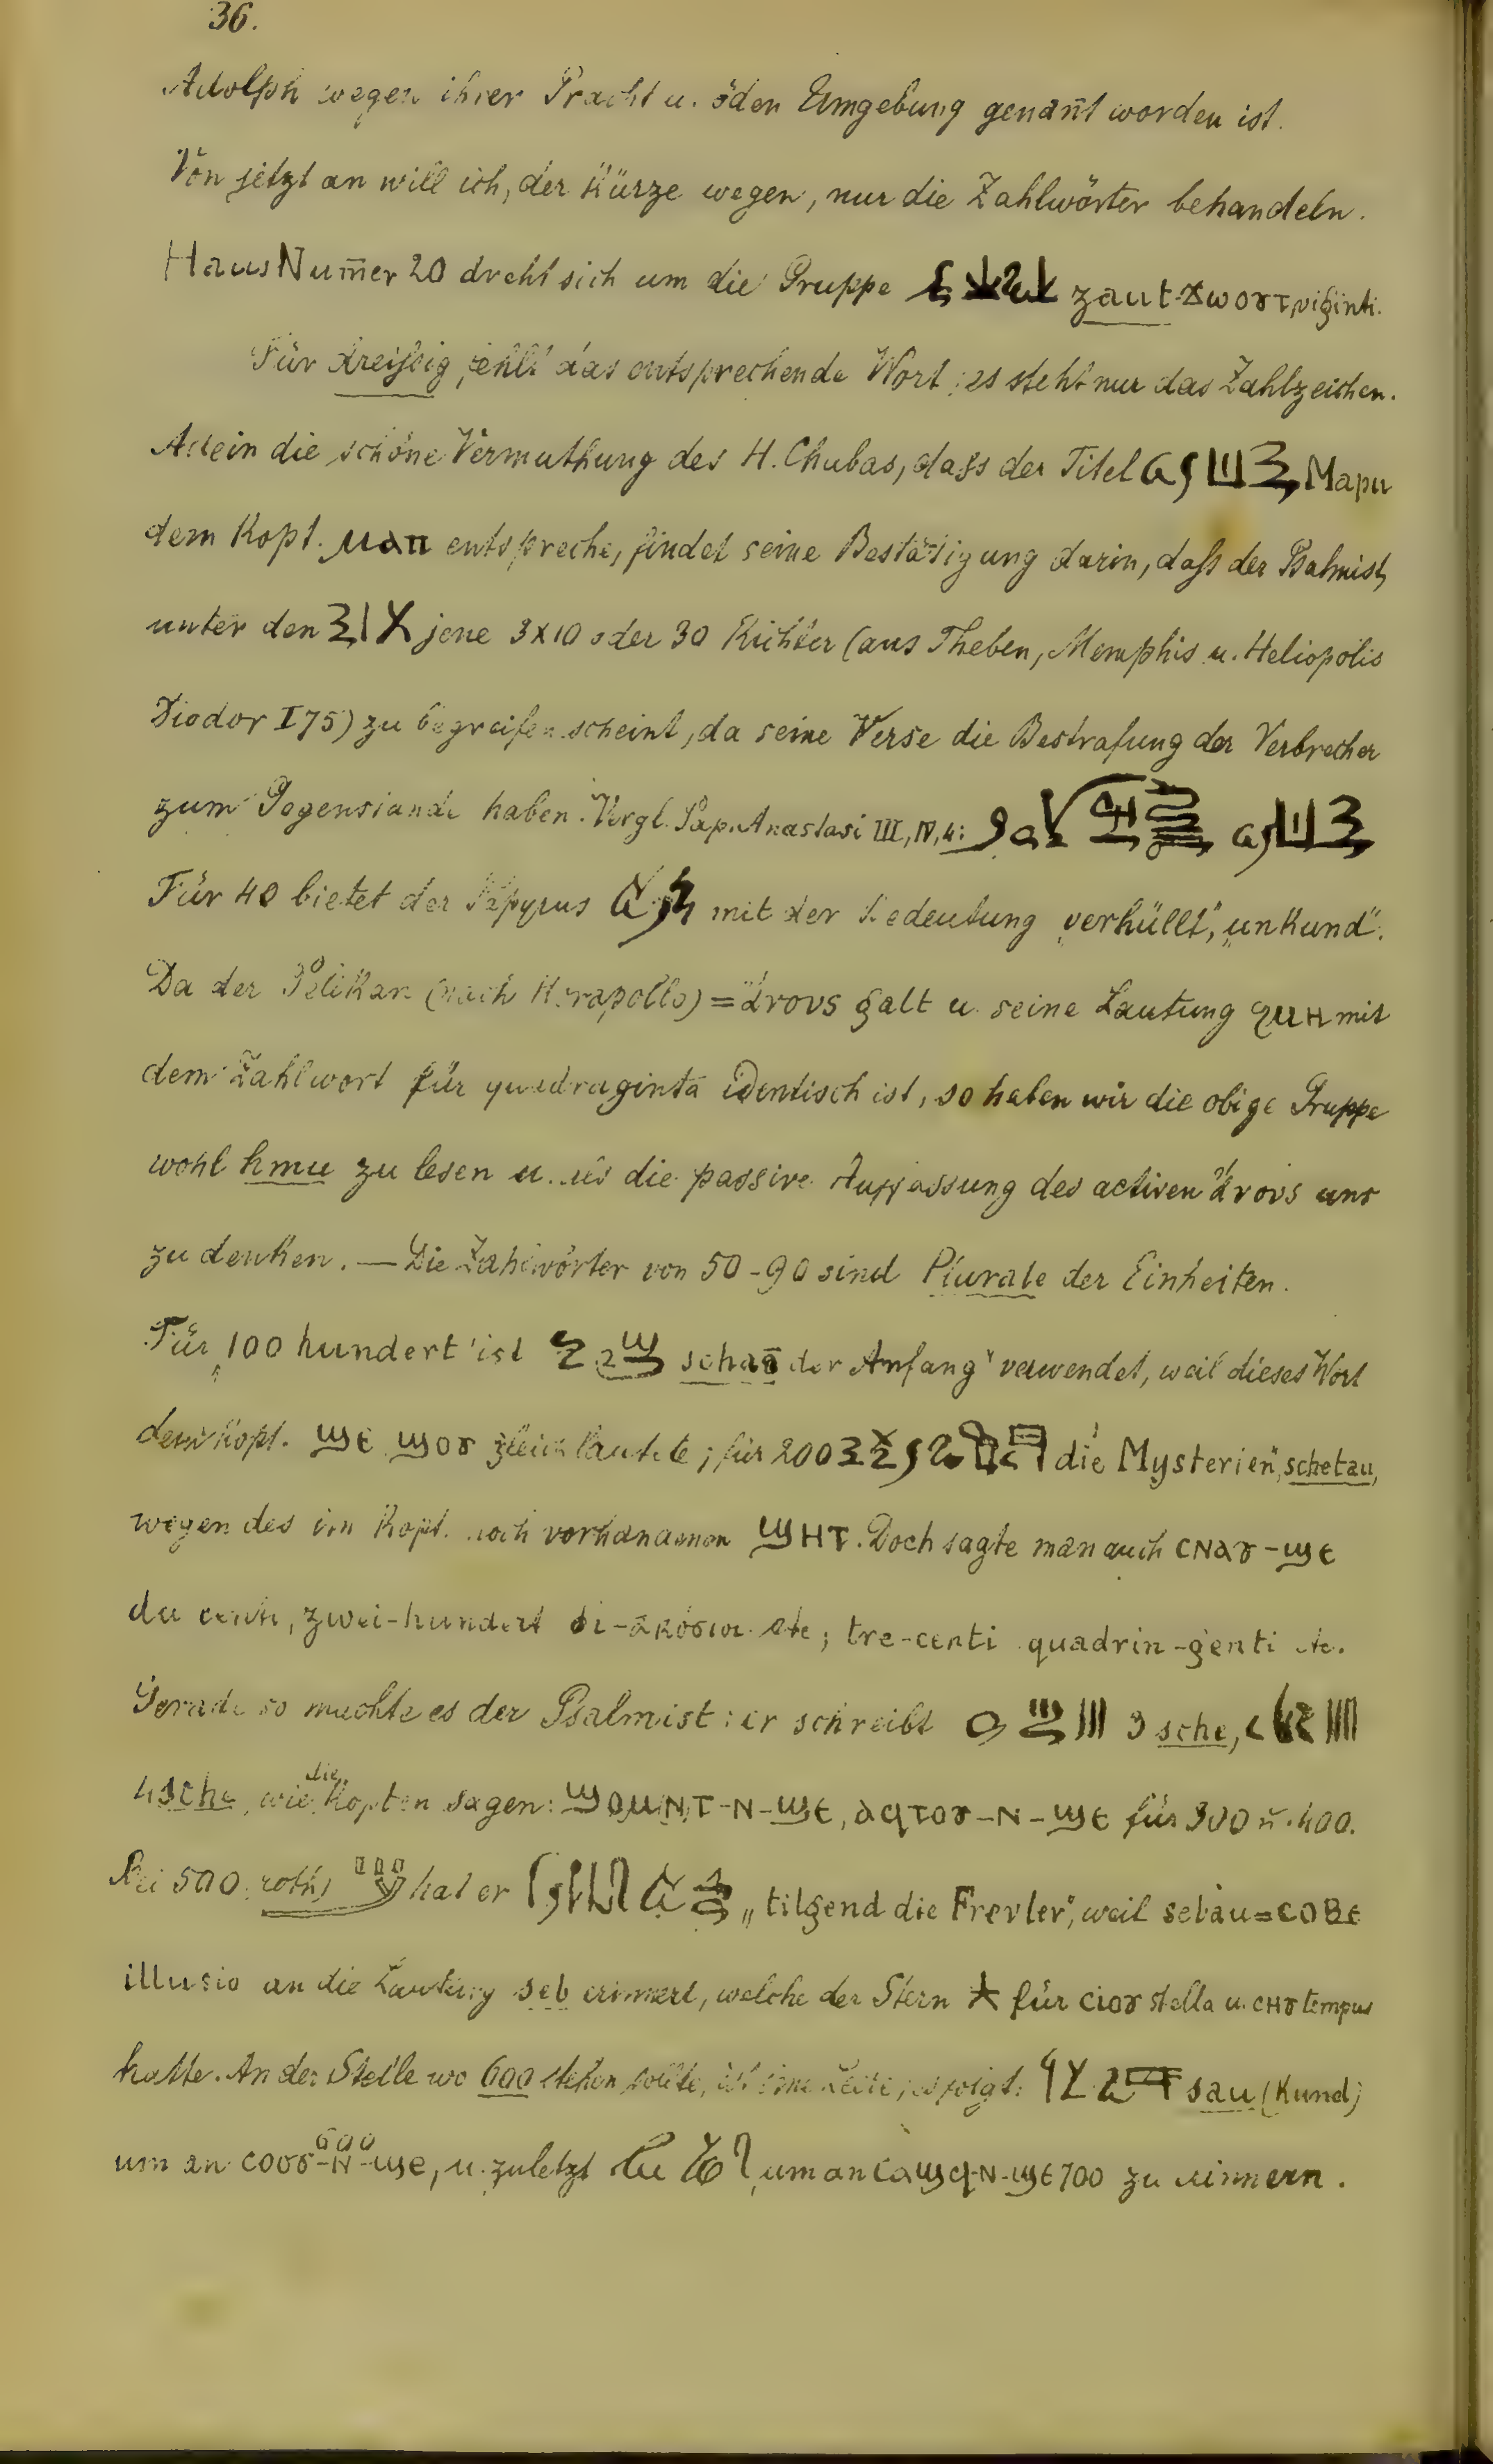 36.
Adolph wegen ihrer Pracht u. öden Umgebung genañt worden ist.
Von jetzt an will ich, der Kürze wegen, nur die Zahlwörter behandeln.
Haus Num̄er 20 dreht sich um die Gruppe zaut ϫⲱⲟⲩⲧ, viginti.
Für dreißig fehlt das entsprechende Wort; es steht nur das Zahlzeichen.
Allein die schöne Vermuthung des H. Chabas, dass der Titel Mapu
dem Kopt. ⲙⲁⲡ entspreche, findet seine Bestätigung darin, daß der Psalmist,
unter den jene 3x10 oder 30 Richter (aus Theben, Memphis u. Heliopolis
Diodor I 75) zu begreifen scheint, da seine Verse die Bestrafung der Verbrecher
zum Gegenstande haben. Vergl. Pap. Anastasi III, IV, 4:
Für 40 bietet der Papyrus mit der Bedeutung „verhüllt", „unkund".
Da der Pelikan (nach Horapollo) = ἄνους galt u. seine Lautung ϩⲙⲏ mit
dem Zahlwort für quadraginta identisch ist, so haben wir die obige Gruppe
wohl hmu zu lesen u. als die passive Auffassung des activen ἄνους uns
zu denken. — Die Zahlwörter von 50-90 sind Plurale der Einheiten.
Für „100 hundert" ist schaā „der Anfang" verwendet, weil dieses Wort
dem Kopt. ϣⲉ ϣⲟⲩ gleich lautete; für 200 „die Mysterien", schetau,
wegen des im Kopt. noch vorhandenen ϣⲏⲧ. Doch sagte man auch ⲥⲛⲁⲩ-ϣⲉ
du centi, zwei-hundert δι-ακόσιοι etc; tre-centi quadrin-genti etc.
Gerade so machte es der Psalmist: er schreibt III 3 sche, IIII
4 sche, wie die Kopten sagen: ϣⲟⲙⲛⲧ-ⲛ-ϣⲉ, ⲁϥⲧⲟⲩ-ⲛ-ϣⲉ für 300 u. 400.
Bei 500 (roth) hat er „tilgend die Frevler", weil sebau = ⲥⲟⲃⲉ
illusio an die Lautung seb erinnert, welche der Stern ★ für ⲥⲓⲟⲩ stella u. ⲥⲏⲩ tempus
hatte. An der Stelle wo 600 stehen sollte, ist eine Lücke; es folgt: sau (Kund)
um an ⲥⲟⲟⲩ-ⲛ-ϣⲉ 600, u. zuletzt um an ⲥⲁϣϥ-ⲛ-ϣⲉ 700 zu erinnern.